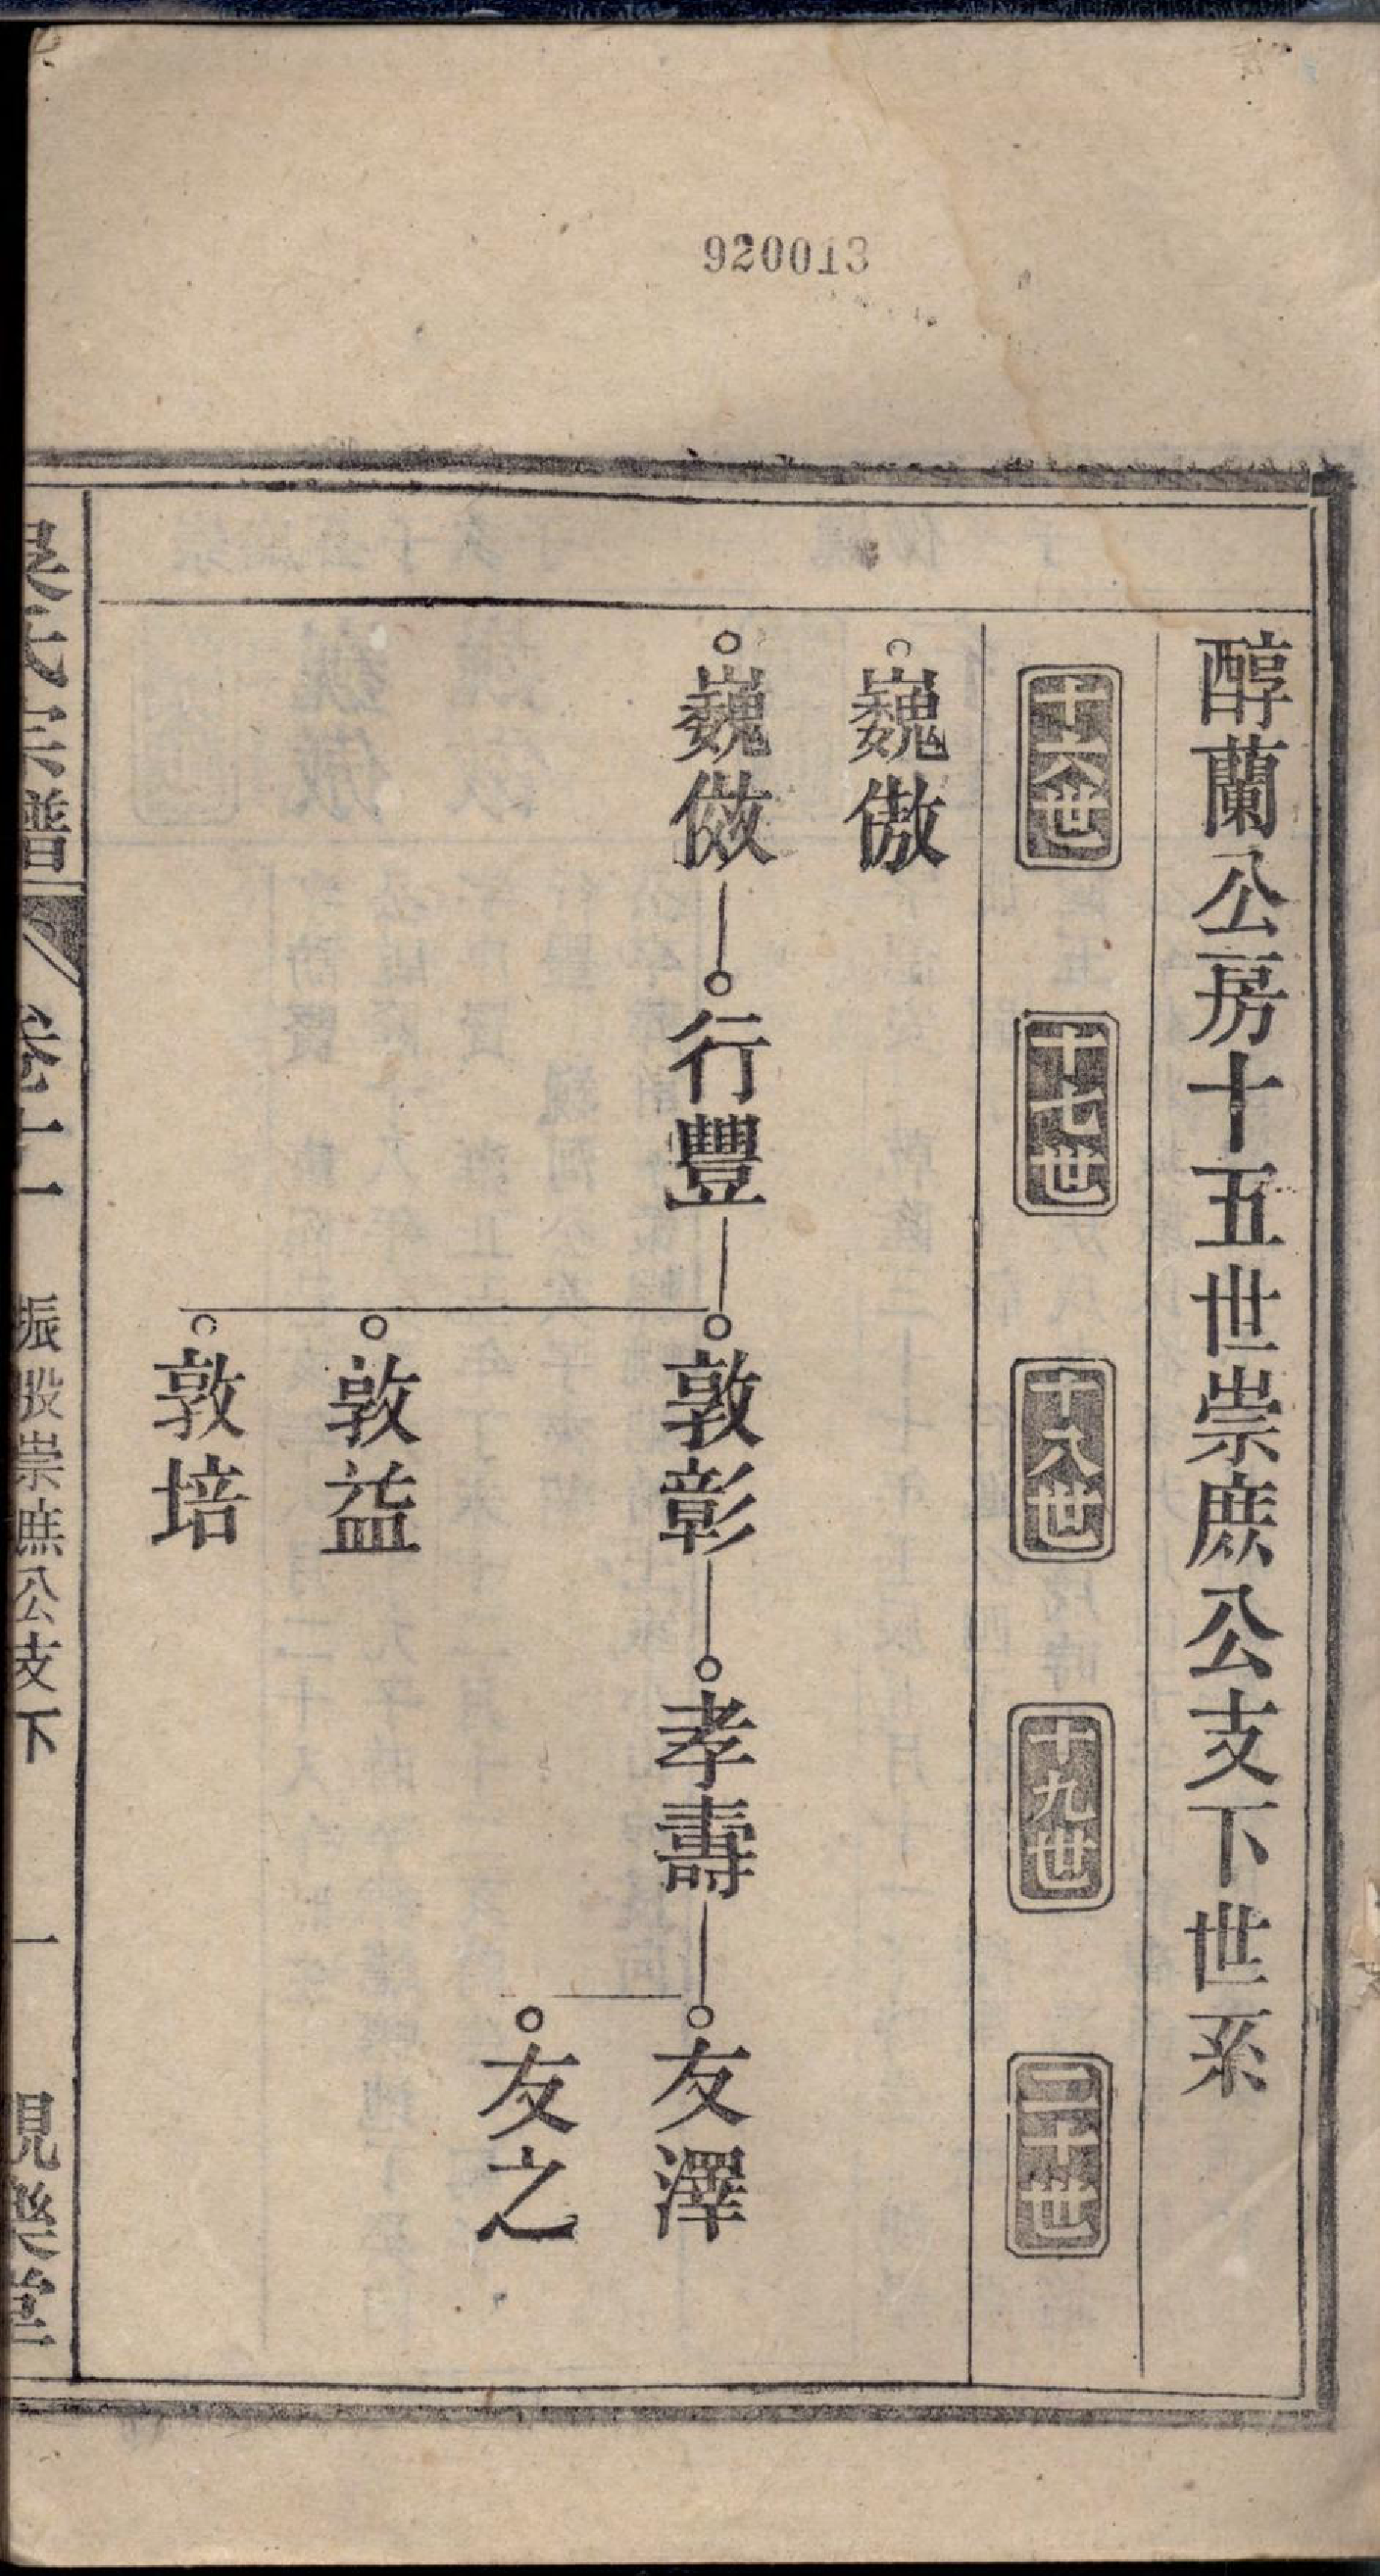 920013
醇蘭公房十五世崇庶公支下世系
十六世
十七世
十八世
十九世
二十世
巍傲
巍傚
行豐
敦彰
孝壽
友澤
友之
敦益
敦培
吳氏宗譜
卷十一
振股崇庶公支下
一
現樂堂